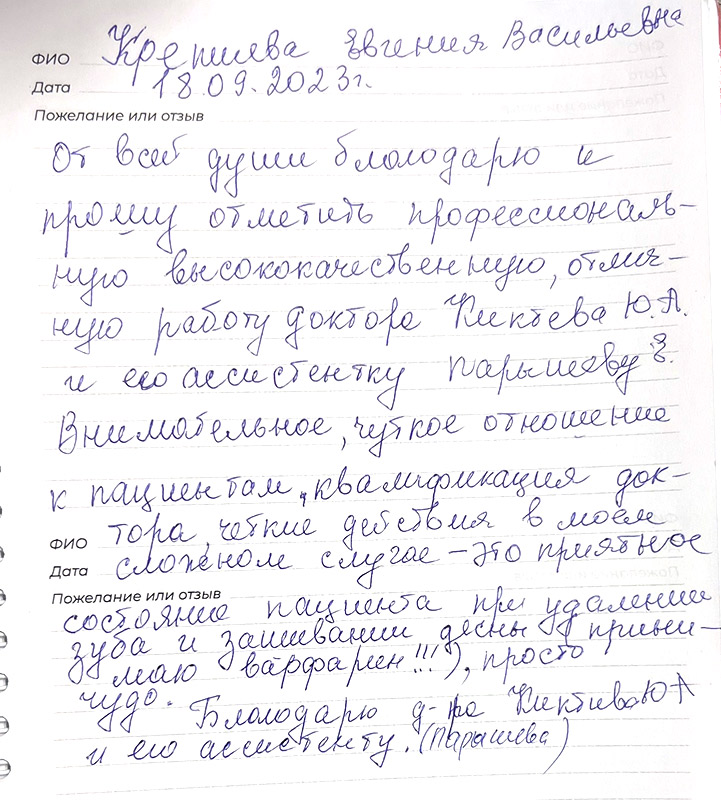 ФИО Крепшева Евгения Васильевна
Дата 18.09.2023г.
Пожелание или отзыв
От всей души благодарю и
прошу отметить профессиональ-
ную высококачественную, отлич-
ную работу доктора Киктева Ю.А.
и его ассистентку Парышеву Е.
Внимательное, чуткое отношение
к пациентам, квалификация док-
ФИО тора, четкие действия в моем
Дата сложном случае – это приятное
Пожелание или отзыв
состояние пациента при удалении
зуба и зашивании десны (прини-
маю варфарин!!!), просто
чудо. Благодарю д-ра Киктева Ю А
и его ассистенту. (Парышева)